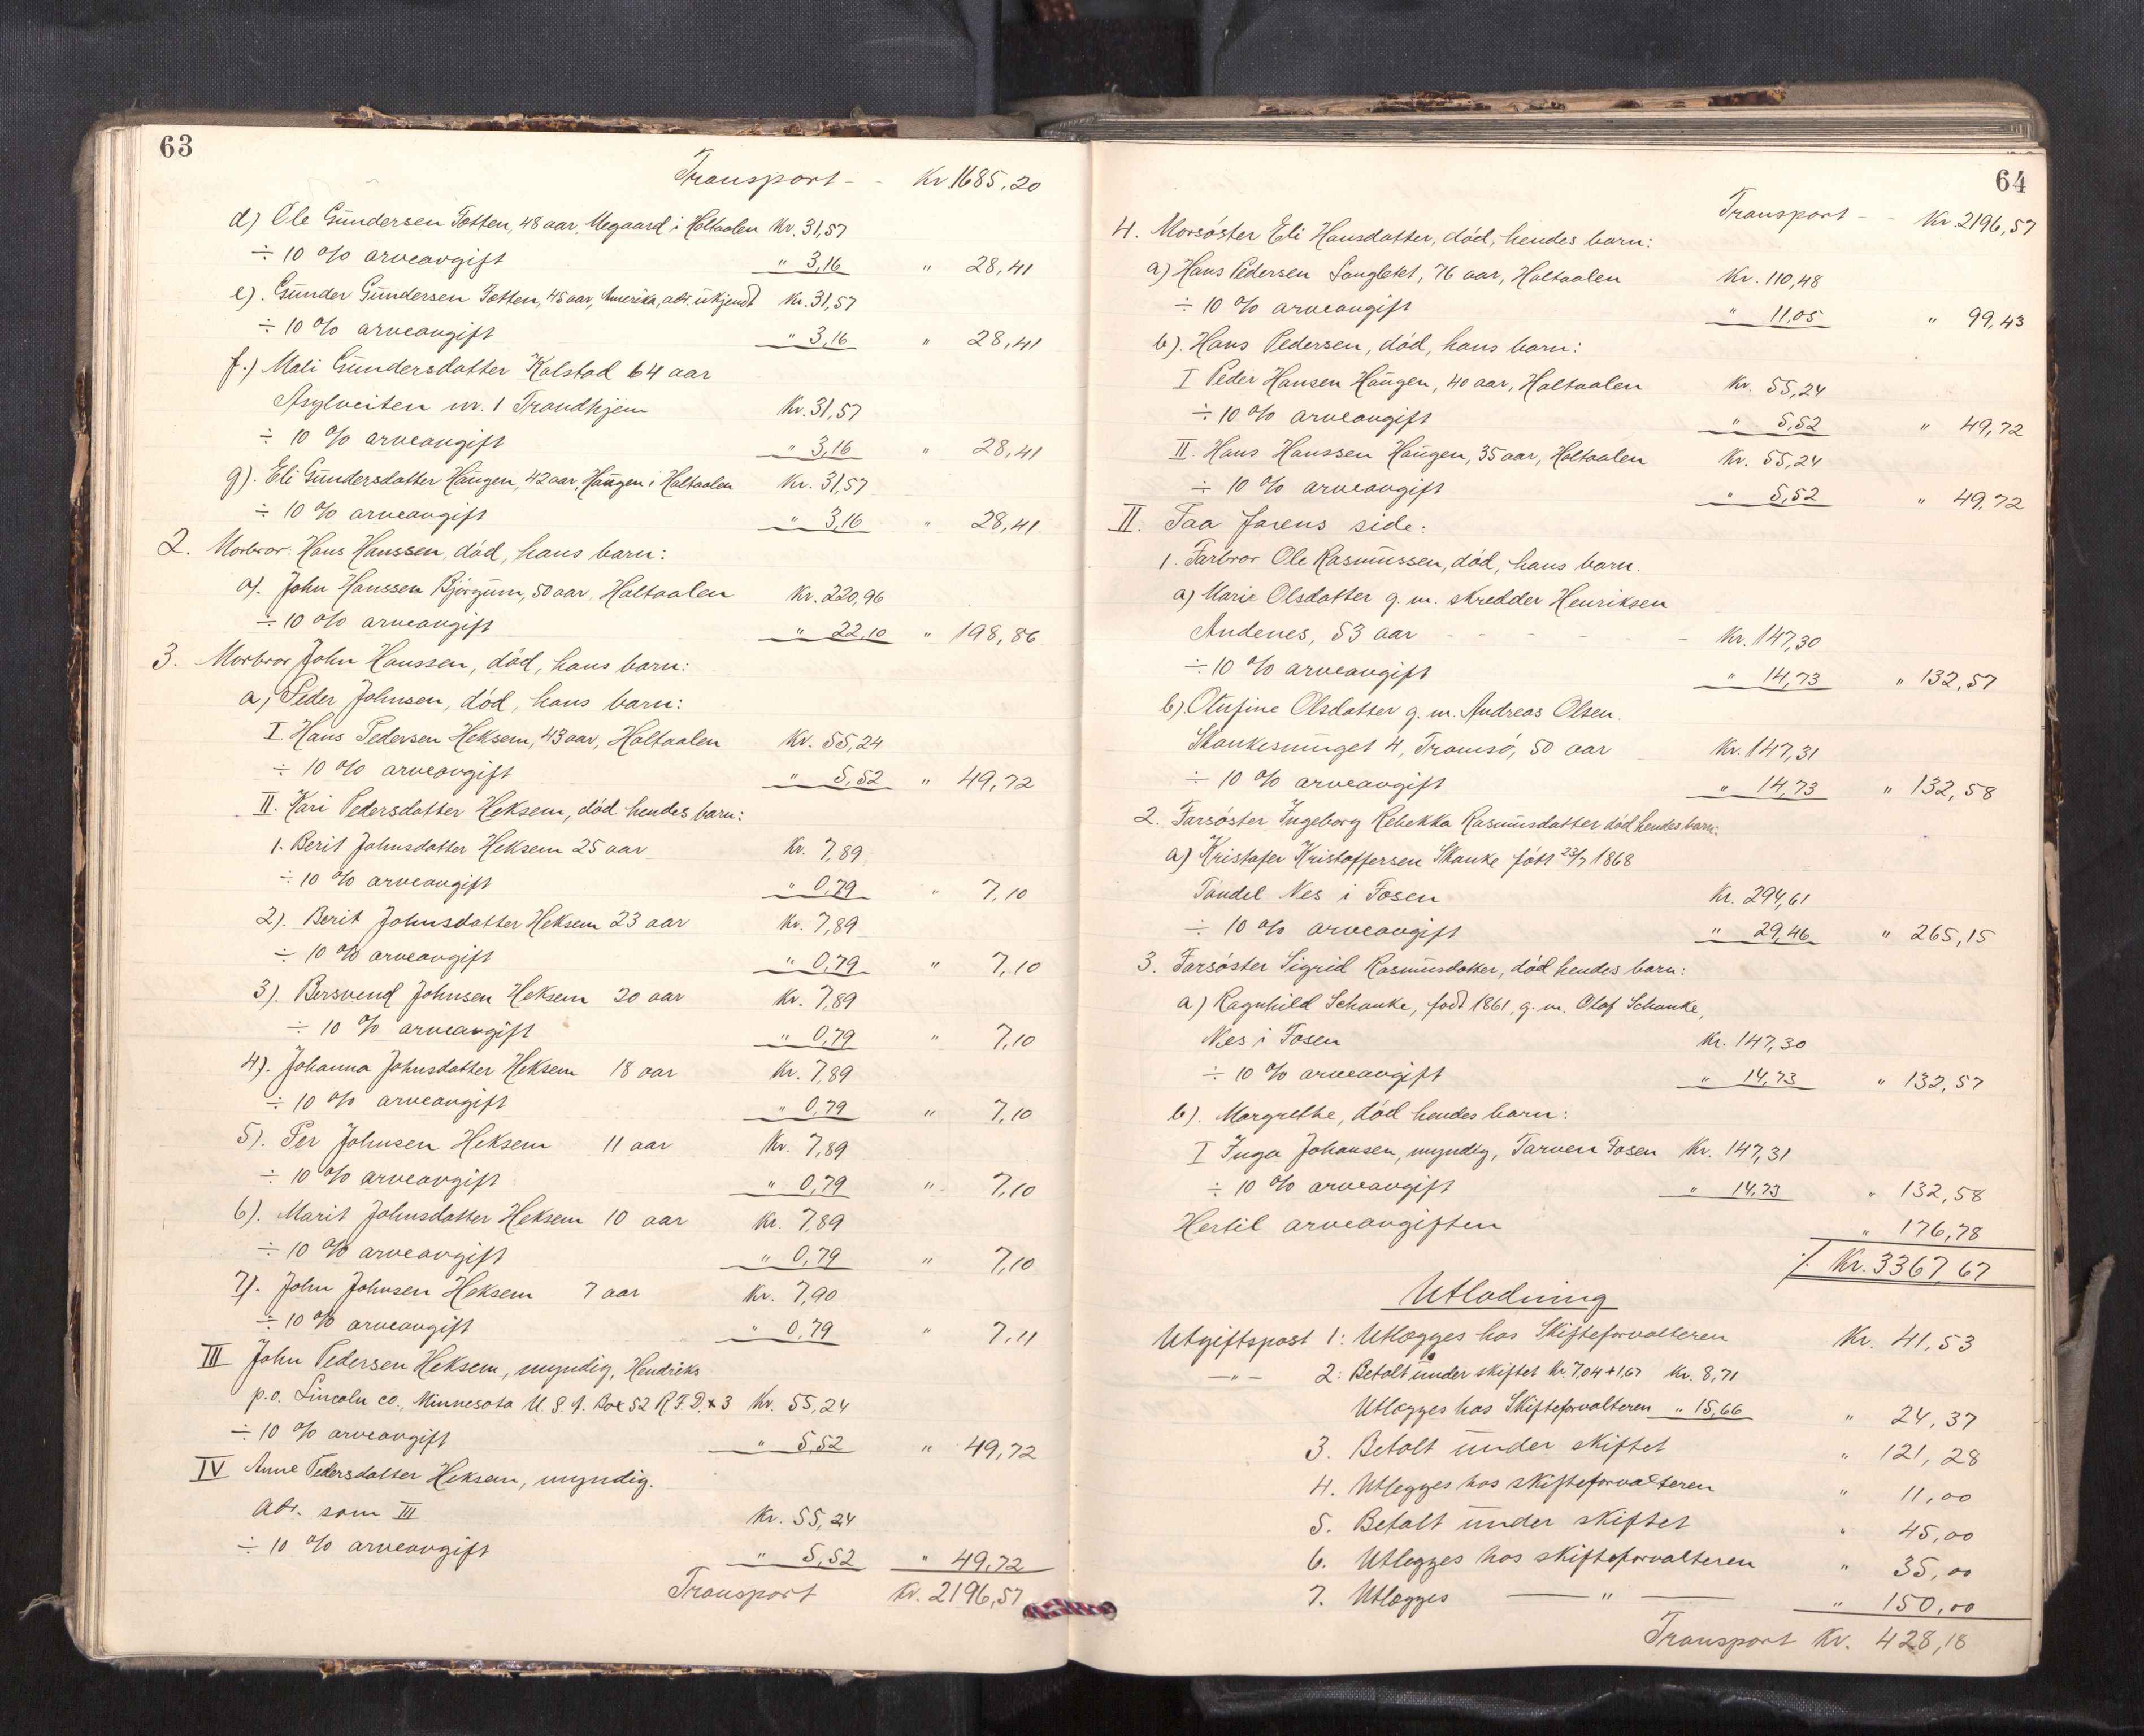 63
Transport - - Kr. 1685,20
d) Ole Gundersen Totten, 48 aar, Megaard i Holtaalen Kr. 31,57
÷ 10 % arveavgift " 3,16 " 28,41
e). Gunder Gundersen Totten, 45 aar, Amerika, adr. ukjendt Kr. 31,57
÷ 10 % arveavgift " 3,16 " 28,41
f.) Mali Gundersdatter Kolstad 64 aar
Asylveiten nr. 1 Trondhjem Kr. 31,57
÷ 10 % arveavgift " 3,16 " 28,41
g). Eli Gundersdatter Haugen, 42 aar, Haugen i Holtaalen Kr. 31,57
÷ 10 % arveavgift " 3,16 " 28,41
2. Morbror: Hans Hanssen, död, hans barn:
a). John Hanssen Bjørgum, 50 aar, Holtaalen Kr. 220,96
÷ 10 % arveavgift " 22,10 " 198,86
3. Morbror John Hanssen, död, hans barn:
a) Peder Johnsen, död, hans barn:
I. Hans Pedersen Heksem, 43 aar, Holtaalen Kr. 55,24
÷ 10 % arveavgift " 5,52 " 49,72
II. Kari Pedersdatter Heksem, död hendes barn:
1. Berit Johnsdatter Heksem 25 aar Kr. 7,89
÷ 10 % arveavgift " 0,79 " 7,10
2). Berit Johnsdatter Heksem 23 aar Kr. 7,89
÷ 10 % arveavgift " 0,79 " 7,10
3). Bersvend Johnsen Heksem 20 aar Kr. 7,89
÷ 10 % arveavgift " 0,79 " 7,10
4). Johanna Johnsdatter Heksem 18 aar Kr. 7,89
÷ 10 % arveavgift " 0,79 " 7,10
5). Per Johnsen Heksem 11 aar Kr. 7,89
÷ 10 % arveavgift " 0,79 " 7,10
6). Marit Johnsdatter Heksem 10 aar Kr. 7,89
÷ 10 % arveavgift " 0,79 " 7,10
7). John Johnsen Heksem 7 aar Kr. 7,90
÷ 10 % arveavgift " 0,79 " 7,11
III John Pedersen Heksem, myndig, Hendriks
p.o. Lincoln co., Minnesota U.S.A. Box 52 R.F.D. x 3 Kr. 55,24
÷ 10 % arveavgift " 5,52 " 49,72
IV Anne Pedersdatter Heksem, myndig.
adr. som III Kr. 55,24
÷ 10 % arveavgift " 5,52 " 49,72
Transport Kr. 2196,57
64
Transport - - Kr. 2196,57
4. Morsöster Eli Hansdatter, död, hendes barn:
a) Hans Pedersen Langletet, 76 aar, Holtaalen Kr. 110,48
÷ 10 % arveavgift " 11,05 " 99,43
b). Hans Pedersen, död, hans barn:
I Peder Hansen Haugen, 40 aar, Holtaalen Kr. 55,24
÷ 10 % arveavgift " 5,52 " 49,72
II. Hans Hanssen Haugen, 35 aar, Holtaalen Kr. 55,24
÷ 10 % arveavgift " 5,52 " 49,72
II. Paa farens side:
1. Farbror Ole Rasmussen, död, hans barn.
a) Marie Olsdatter g.m. skredder Henriksen
Andenes, 53 aar - - - - - Kr. 147,30
÷ 10 % arveavgift " 14,73 " 132,57
b) Olufine Olsdatter g.m. Andreas Olsen.
Skankesmuget 4, Tromsö, 50 aar Kr. 147,31
÷ 10 % arveavgift " 14,73 " 132,58
2. Farsöster Ingeborg Rebekka Rasmusdatter död hendes barn:
a) Kristofer Kristoffersen Skanke född 23/7 1868
Töndel Nes i Fosen Kr. 294,61
÷ 10 % arveavgift " 29,46 " 265,15
3. Farsöster Sigrid Rasmusdatter, död hendes barn:
a) Ragnhild Schanke, född 1861, g.m. Olaf Schanke,
Nes i Fosen Kr. 147,30
÷ 10 % arveavgift " 14,73 " 132,57
b). Margrethe, död hendes barn:
I Inga Johansen, myndig, Tarven Fosen Kr. 147,31
÷ 10 % arveavgift " 14,73 " 132,58
Hertil arveavgiften " 176,78
⁒ Kr. 3367,67
Utlodning
Utgiftspost 1: Utlægges hos Skifteforvalteren Kr. 41,53
—"— 2: Betalt under skiftet Kr. 7,04 + 1,67 Kr. 8,71
Utlægges hos Skifteforvalteren " 15,66 " 24,37
3. Betalt under skiftet " 121,28
4. Utlegges hos skifteforvalteren " 11,00
5. Betalt under skiftet " 45,00
6. Utlegges hos skifteforvalteren " 35,00
7. Utlægges —"— " 150,00
Transport Kr. 428,18